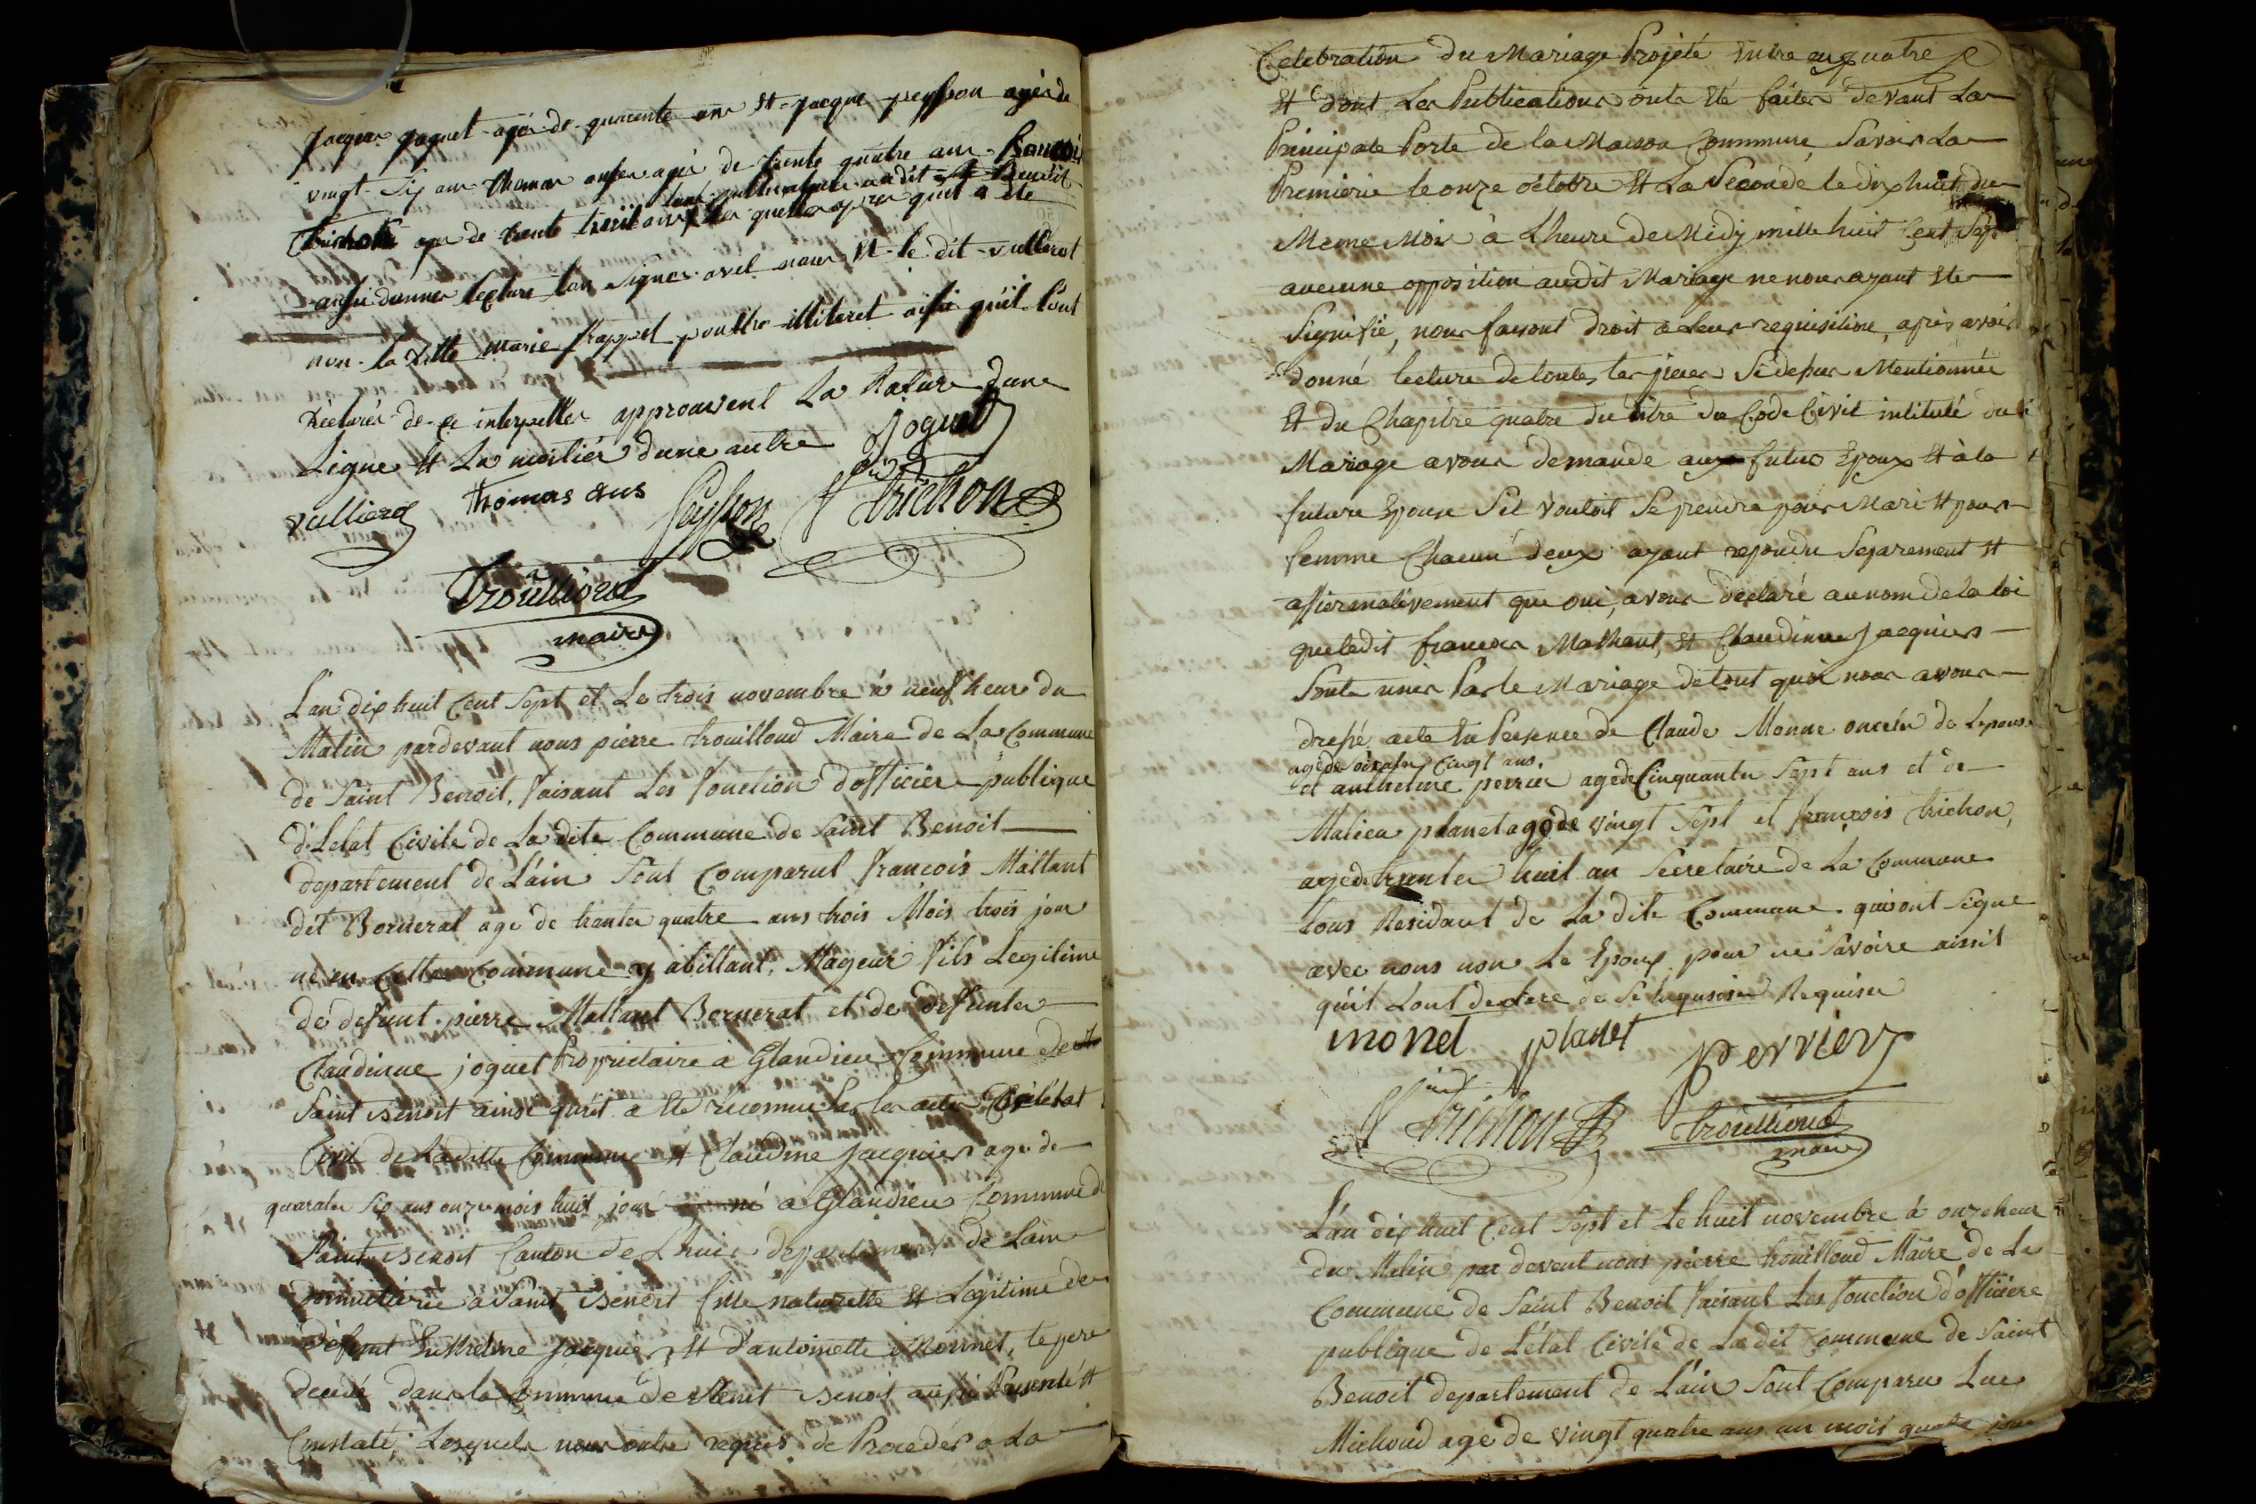 Jacques joguet agé de quarente ans et jacque peysson agée de
vingt-six ans thomas anse agée de trente quatre ans francois
trichon age de trente huit ans
tous audit St Benoit
les quelles apres qu'il a été
aussi donner lecture ont signer avec nous et le dit vullierot
non la ditte marie frappet pour être illiteret aisi quil l'ont
déclarés de ce interpeller approuvent La Rature dune
Ligne et La moitiér dune autre Joguet
vullierod thomas ans Peysson f trichon
trouilliond
maire
L'an dix huit Cent Sept et Le trois novembre à neuf heure du
Matin pardevant nous pierre trouilloud Maire de La Commune
de Saint Benoit, faisant Les fonction d'officier publique
d'Letat Civile de La dite Commune de Saint Benoit
departement de L'ain Sont Comparut francois Maltant
dit Bornerat age de trante quatre ans trois Mois trois jour
né en Cette Commune y abittant, Mageur fils Legitime
de defunt pierre Maltant Bernerat et de defunte
Claudinne joguet Proprietaire a Glandieu Commune de
Saint Benoit ainsi qu'il a été reconnu Par les actes De l'état
Civil de Laditte Commune et Claudine Jacquier age de
quarante six ans onze mois huit jour né a Glandieu Commune de
Saint Benoit Canton de Lhuis departement de Lain
domiciliée a Saint Benoit fille naturelle et Legitime de
défunt Anthelme Jacquier, et d'antoinette Monnet, le pere
decedé dans la Commune de Saint Benoit aussi Presenté et
Constaté, Lesquels nous onts requis de Proceder a La
Celebration du Mariage Projeté entre
et dont Les Publications onts été faites devant La
Principale Porte de la Maison Commune, Savoir La
Premierie le onze octobre et La Seconde le dix huit du
Meme Mois à Lheure de Midy mille huit Cent Sept
aucune opposition audit Mariage ne nous ayant été
Signifié, nous faisont droit a Leur requisitione, apres avoir
donné lecture de toutes les pieces Sidesus Mentionnées
et du Chapitre quatre du titre du Code Civil intitulé du
Mariage avons demandé aux futur Epoux et à la
future Epouse Sil vouloit Se prendre pour Mari et pour
femme Chacun deux ayant repondu Separement et
affiermativement que oui, avons déclaré au nom de la loi
que ledit francois Malhant, et Claudinne Jacquier
Sonts unis Par le Mariage de tout quoi nous avons
dressé acte En Presence de Claude Monne oncele de Lepouse
age de soixante Cinqt ans
et anthelme perrier age de Cinquante Sept ans et de
Matieu planet age de vingt Sept et francois trichon,
age de trante huit an Secretaire de La Commune
tous Residant de La dite Commune qui ont Signe
avec nous non Le Epoux pour ne Savoire ainsit
qu'it Lont declare de Requiser
monet planet perrier
f trichon trouilliond
maire
L'an dix huit Cent Sept et Le huit novembre à onze heur
du Matin par devent nous pierre trouilloud Maire de La
Commune de Saint Benoit faisant Les fonction d'officiere
publique de L'état Civile de La dit Commune de Saint
Benoit departement de L'ain Sont Comparu Luc
Michoud age de vingt quatre ans un mois quatre jour